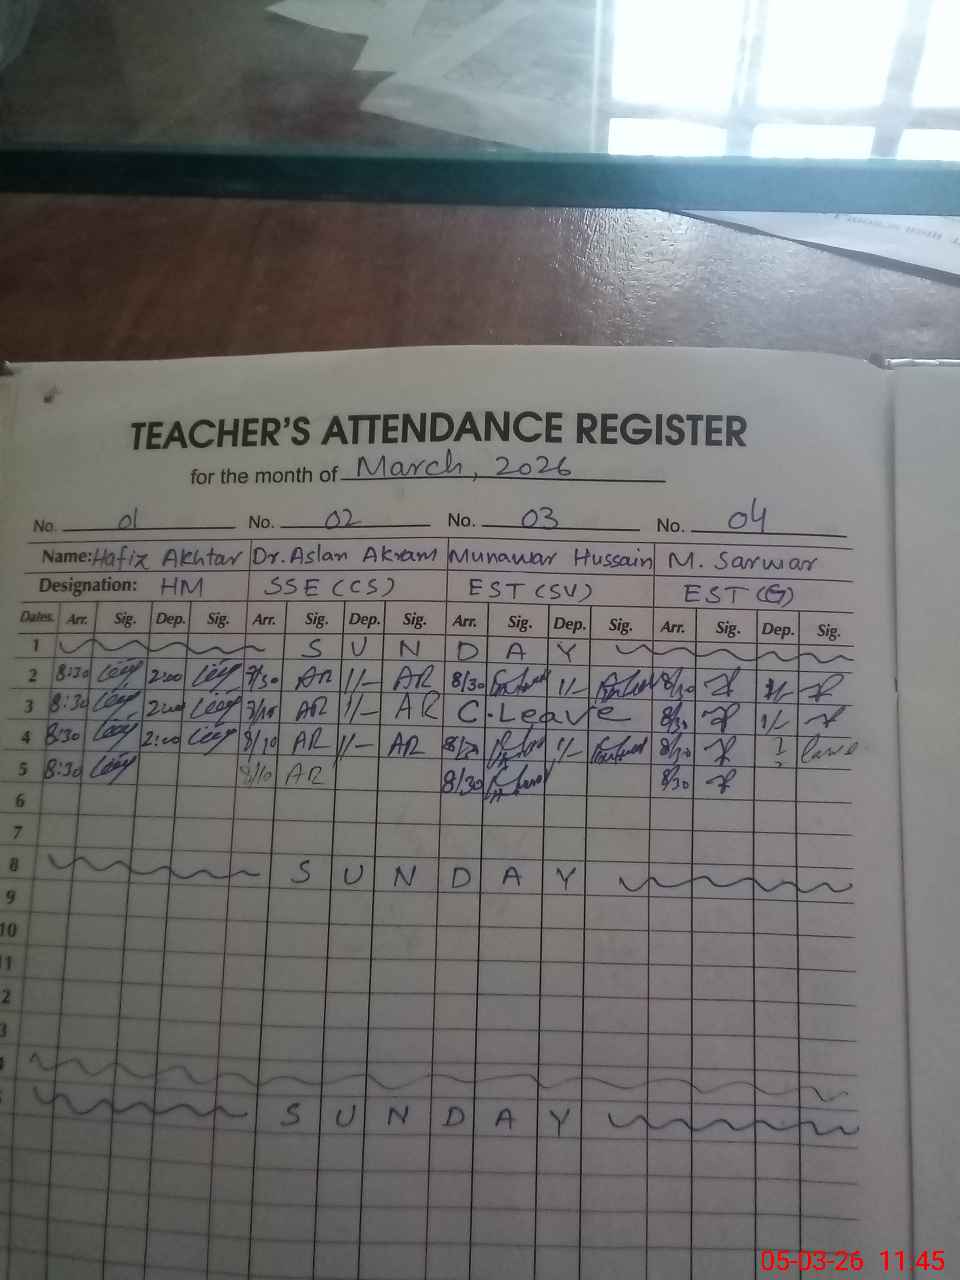 TEACHER'S ATTENDANCE REGISTER
for the month of March, 2026
No. 01 No. 02 No. 03 No. 04
Name: Hafiz Akhtar Dr. Aslan Akram Munawar Hussain M. Sarwar
Designation: HM SSE (CS) EST (SV) EST (G)
Dates. Arr. Sig. Dep. Sig. Arr. Sig. Dep. Sig. Arr. Sig. Dep. Sig. Arr. Sig. Dep. Sig.
1 SUNDAY
2 8:30 2:00 7/50 AR 1/- AR 8/30 1/- 8/30 1/-
3 8:30 2:00 AR 1/- AR C.Leave 8/30 1/-
4 8:30 2:00 8/10 AR 1/- AR 1/- 8/30
5 8:30 8/10 AR 8/30 8/30
6
7
8 SUNDAY
9
10
11
2
3
SUNDAY
05-03-26 11:45